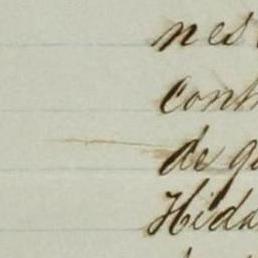 nes
cont
de qu
Hida